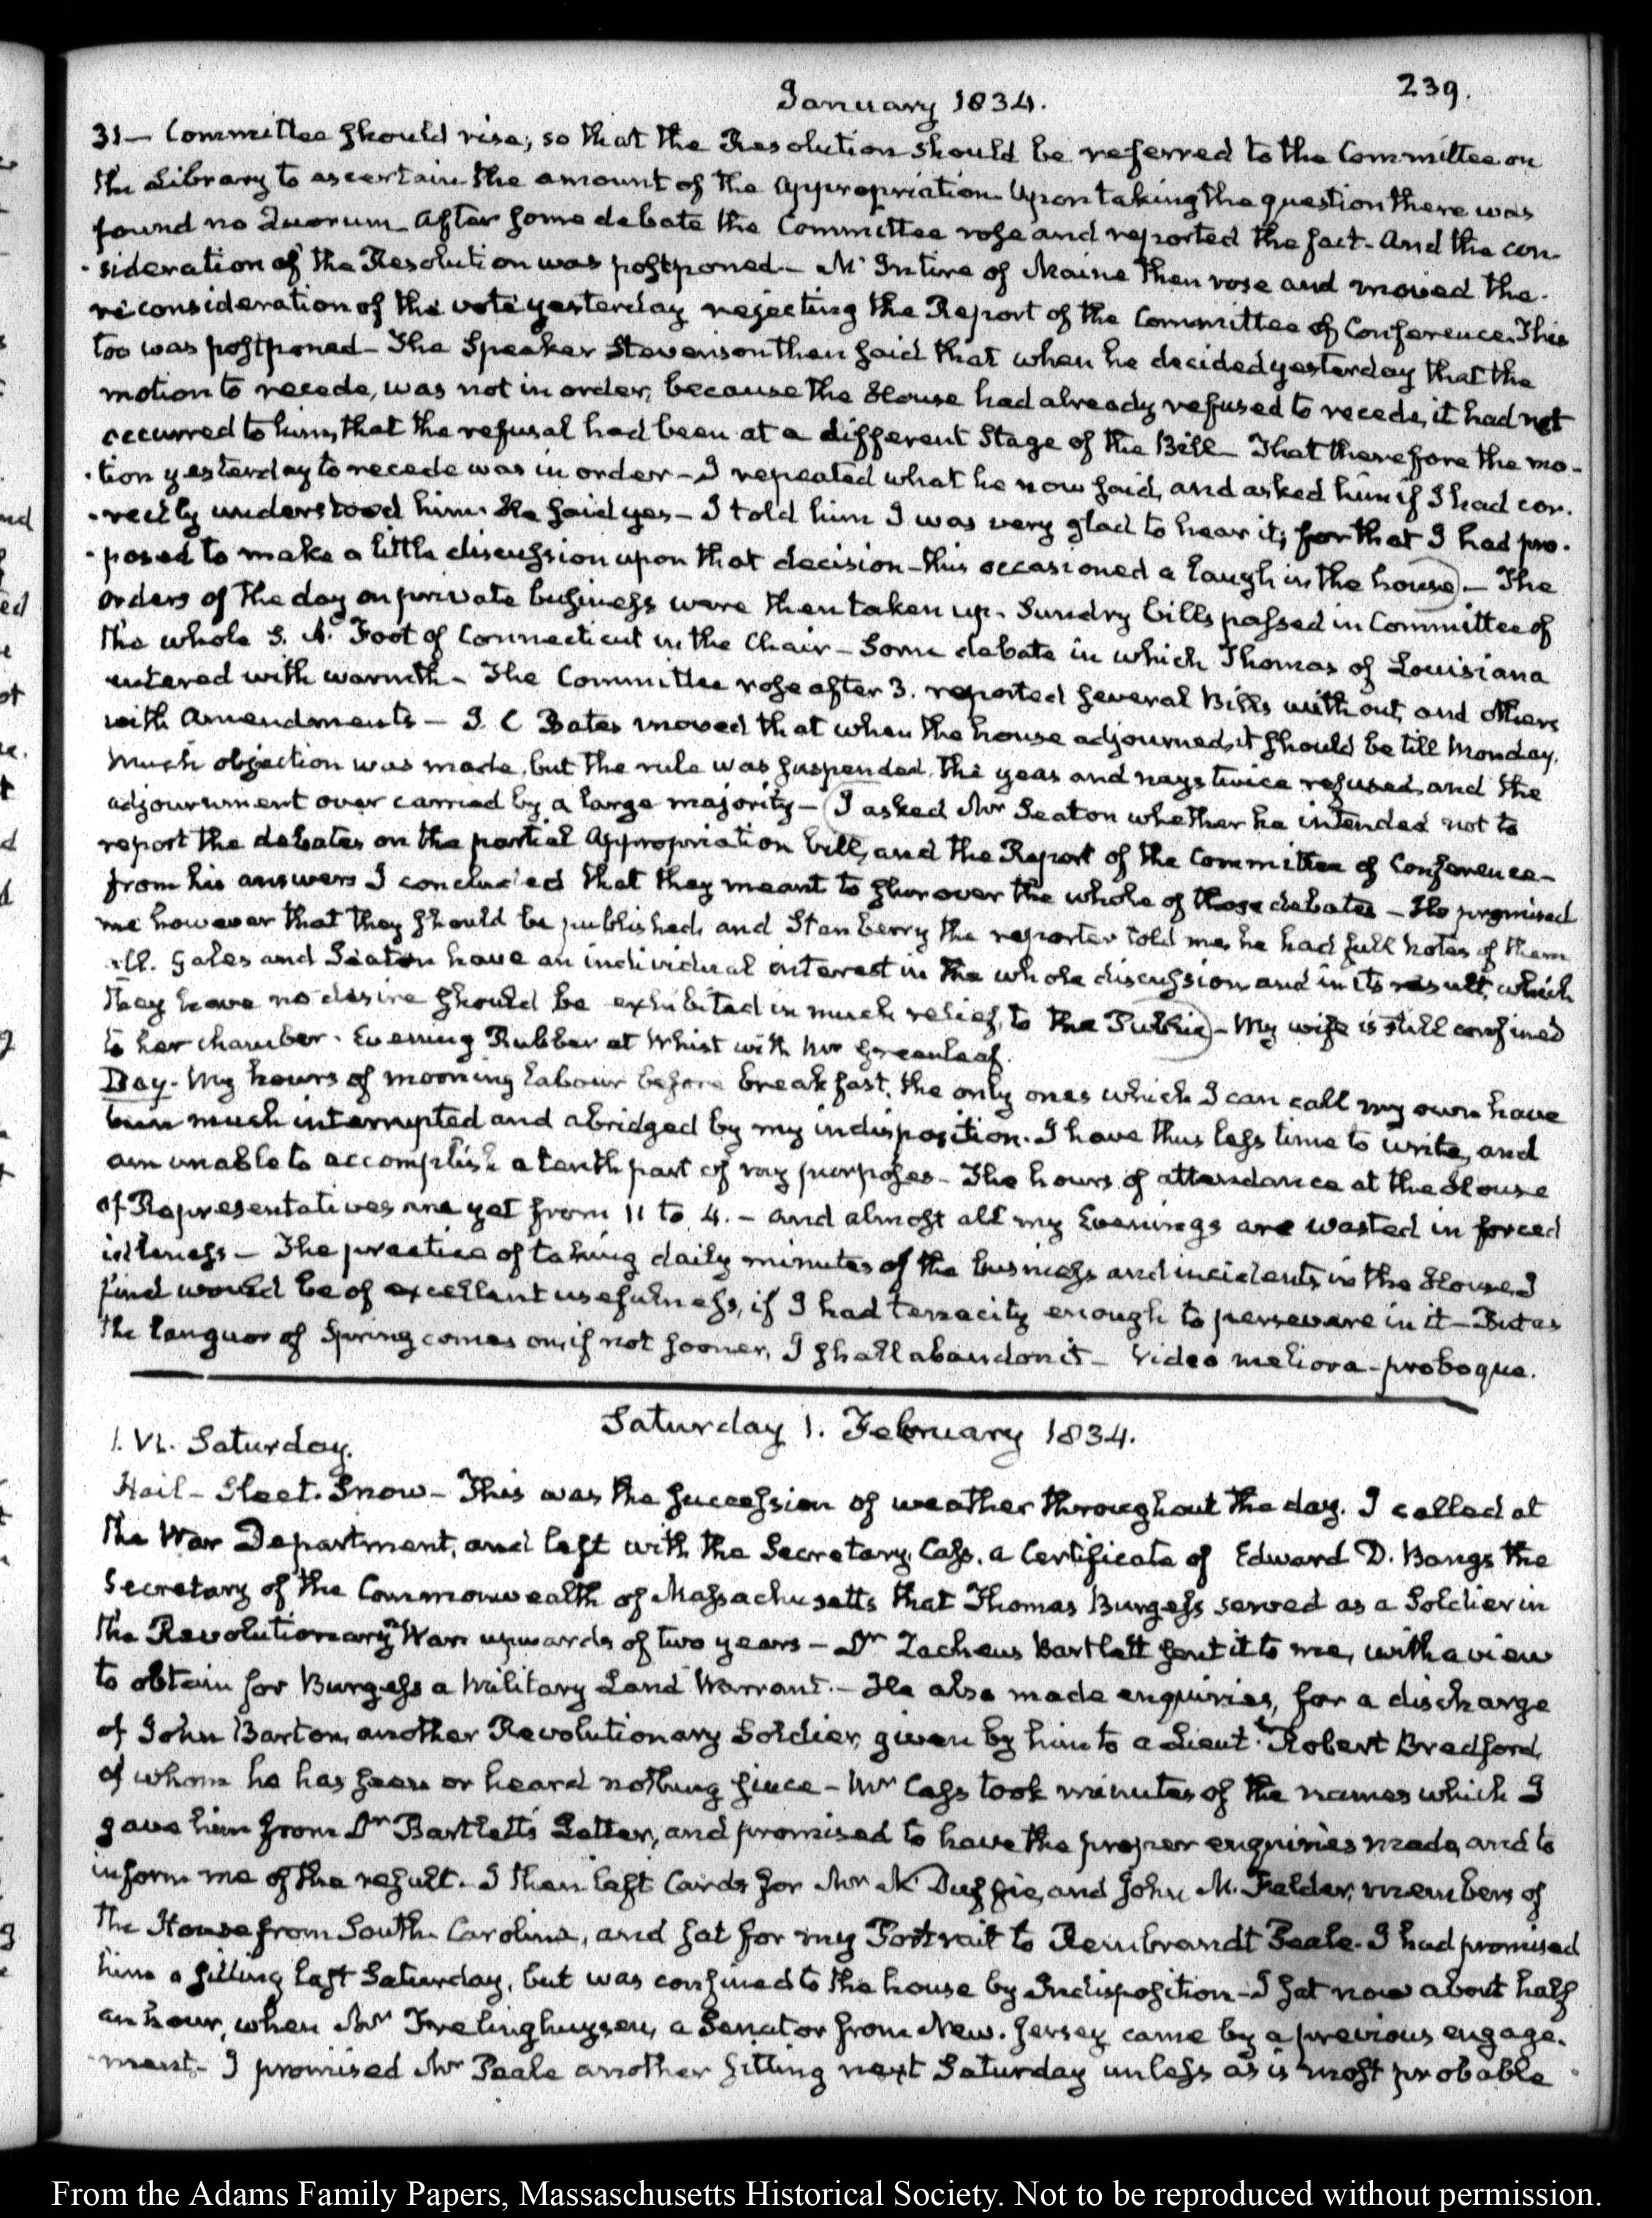 239.
January 1834.
31— Committee should rise; so that the Resolution should be referred to the Committee on
the Library to ascertain the amount of the appropriation. Upon taking the question there was
found no Quorum. After some debate the Committee rose and reported the fact. And the con-
-sideration of the Resolution was postponed— Mc Intire of Maine then rose and moved the
reconsideration of the vote yesterday rejecting the Report of the Committee of Conference. This
too was postponed— The Speaker Stevenson then said that when he decided yesterday that the
motion to recede, was not in order, because the House had already refused to recede, it had not
occurred to him, that the refusal had been at a different Stage of the Bill— That therefore the mo-
-tion yesterday to recede was in order— I repeated what he now said, and asked him if I had cor-
-rectly understood him. He said yes— I told him I was very glad to hear it; for that I had pro-
-posed to make a little discussion upon that decision—this occasioned a laugh in the house)— The
orders of the day on private business were then taken up. Sundry bills passed in Committee of
the whole S. A. Foot of Connecticut in the Chair— Some debate in which Thomas of Louisiana
entered with warmth— The Committee rose after 3. reported several Bills without, and others
with Amendments— I. C Bates moved that when the house adjourned, it should be till Monday.
Much objection was made, but the rule was suspended, the yeas and nays twice refused, and the
adjournment over carried by a large majority— (I asked Mr Seaton whether he intended not to
report the debates on the partial Appropriation bill, and the Report of the Committee of Conference—
from his answers I concluded that they meant to slur over the whole of those debates— He promised
me however that they should be published, and Stanberry the reporter told me, he had full notes of them
all. Gales and Seaton have an individual interest in the whole discussion, and in its result, which
they have no desire should be exhibited in much relief, to the Public)— My wife is still confined
to her chamber. Evening Rubber at Whist with Mr Greenleaf.
Day. My hours of morning labour before breakfast, the only ones which I can call my own have
been much interrupted and abridged by my indisposition. I have thus less time to write, and
am unable to accomplish a tenth part of my purposes— The hours of attendance at the House
of Representatives are yet from 11 to 4.— and almost all my Evenings are wasted in forced
idleness— The practice of taking daily minutes of the business and incidents in the House I
find would be of excellent usefulness, if I had tenacity enough to persevere in it— But as
the languor of Spring comes on, if not sooner, I shall abandon it— Video meliora—proboque.
Saturday 1. February 1834.
1. VI. Saturday.
Hail— Sleet. Snow— This was the succession of weather throughout the day. I called at
the War Department, and left with the Secretary, Cass, a Certificate of Edward D. Bangs the
Secretary of the Commonwealth of Massachusetts that Thomas Burgess served as a Soldier in
the Revolutionary War upwards of two years— Dr Zacheus Bartlett sent it to me, with a view
to obtain for Burgess a Military Land Warrant.— He also made enquiries, for a discharge
of John Barton, another Revolutionary Soldier, given by him to a Lieutt Robert Bradford,
of whom he has seen or heard nothing since— Mr Cass took minutes of the names which I
gave him from Dr Bartlett's Letter, and promised to have the proper enquiries made, and to
inform me of the result. I then left Cards for Mr Mc Duffie, and John M. Felder, members of
the House from South-Carolina, and sat for my Portrait to Rembrandt Peale. I had promised
him a sitting last Saturday, but was confined to the house by Indisposition— I sat now about half
an hour, when Mr Frelinghuysen, a Senator from New-Jersey came by a previous engage-
-ment— I promised Mr Peale another sitting next Saturday unless as is most probable
From the Adams Family Papers, Massaschusetts Historical Society. Not to be reproduced without permission.